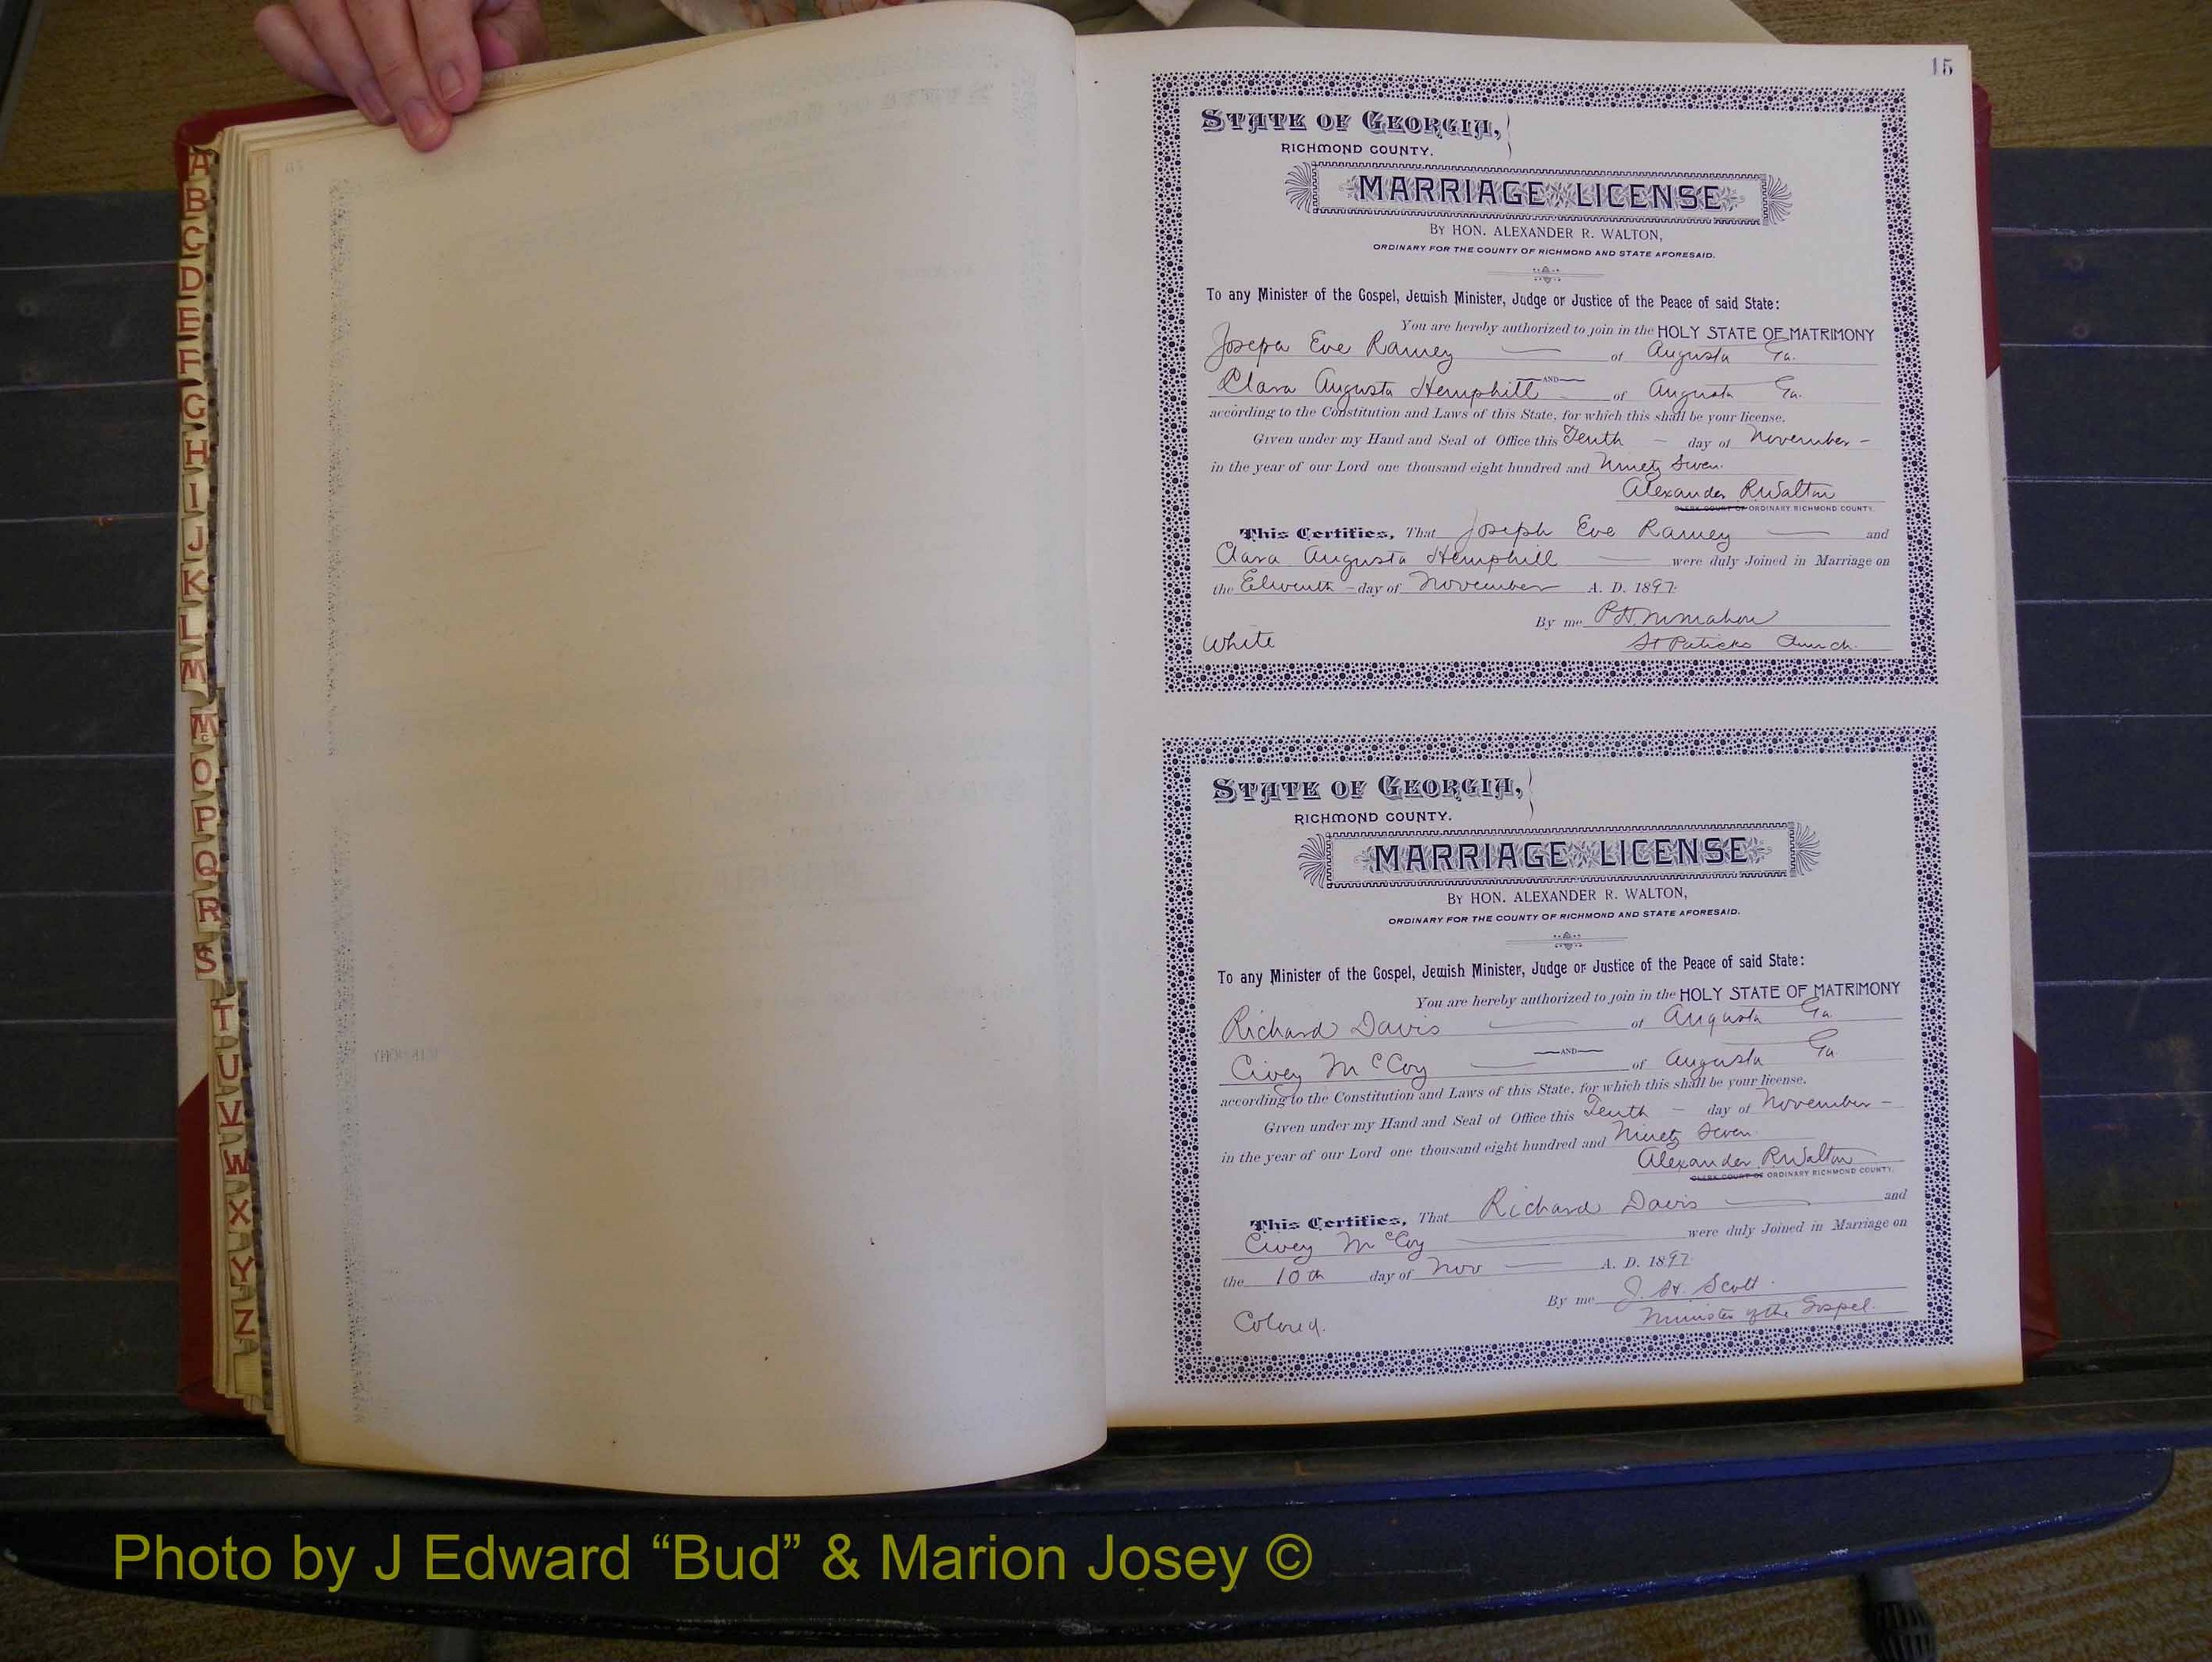 15
STATE OF GEORGIA,
RICHMOND COUNTY.
MARRIAGE LICENSE
BY HON. ALEXANDER R. WALTON,
ORDINARY FOR THE COUNTY OF RICHMOND AND STATE AFORESAID.
To any Minister of the Gospel, Jewish Minister, Judge or Justice of the Peace of said State:
You are hereby authorized to join in the HOLY STATE OF MATRIMONY
Joseph Eve Ramey of Augusta Ga.
AND
Clara Augusta Hemphill of Augusta Ga.
according to the Constitution and Laws of this State, for which this shall be your license.
Given under my Hand and Seal of Office this Tenth day of November
in the year of our Lord one thousand eight hundred and Ninety Seven.
Alexander R. Walton
CLERK COURT OF ORDINARY RICHMOND COUNTY.
This Certifies, That Joseph Eve Ramey and
Clara Augusta Hemphill were duly Joined in Marriage on
the Eleventh day of November A. D. 1897.
By me P H McMahon
White
St Patricks Church.
STATE OF GEORGIA,
RICHMOND COUNTY.
MARRIAGE LICENSE
BY HON. ALEXANDER R. WALTON,
ORDINARY FOR THE COUNTY OF RICHMOND AND STATE AFORESAID.
To any Minister of the Gospel, Jewish Minister, Judge or Justice of the Peace of said State:
You are hereby authorized to join in the HOLY STATE OF MATRIMONY
Richard Davis of Augusta Ga.
AND
Civey McCoy of Augusta Ga
according to the Constitution and Laws of this State, for which this shall be your license.
Given under my Hand and Seal of Office this Tenth day of November
in the year of our Lord one thousand eight hundred and Ninety Seven.
Alexander R. Walton
CLERK COURT OF ORDINARY RICHMOND COUNTY.
This Certifies, That Richard Davis and
Civey McCoy were duly Joined in Marriage on
the 10th day of Nov A. D. 1897.
By me J. H. Scott.
Minister of the Gospel.
Colored.
A
B
C
D
E
F
G
H
I
J
K
L
M
Mc
O
P
Q
R
S
T
U
V
W
X
Y
Z
Photo by J Edward “Bud” & Marion Josey ©